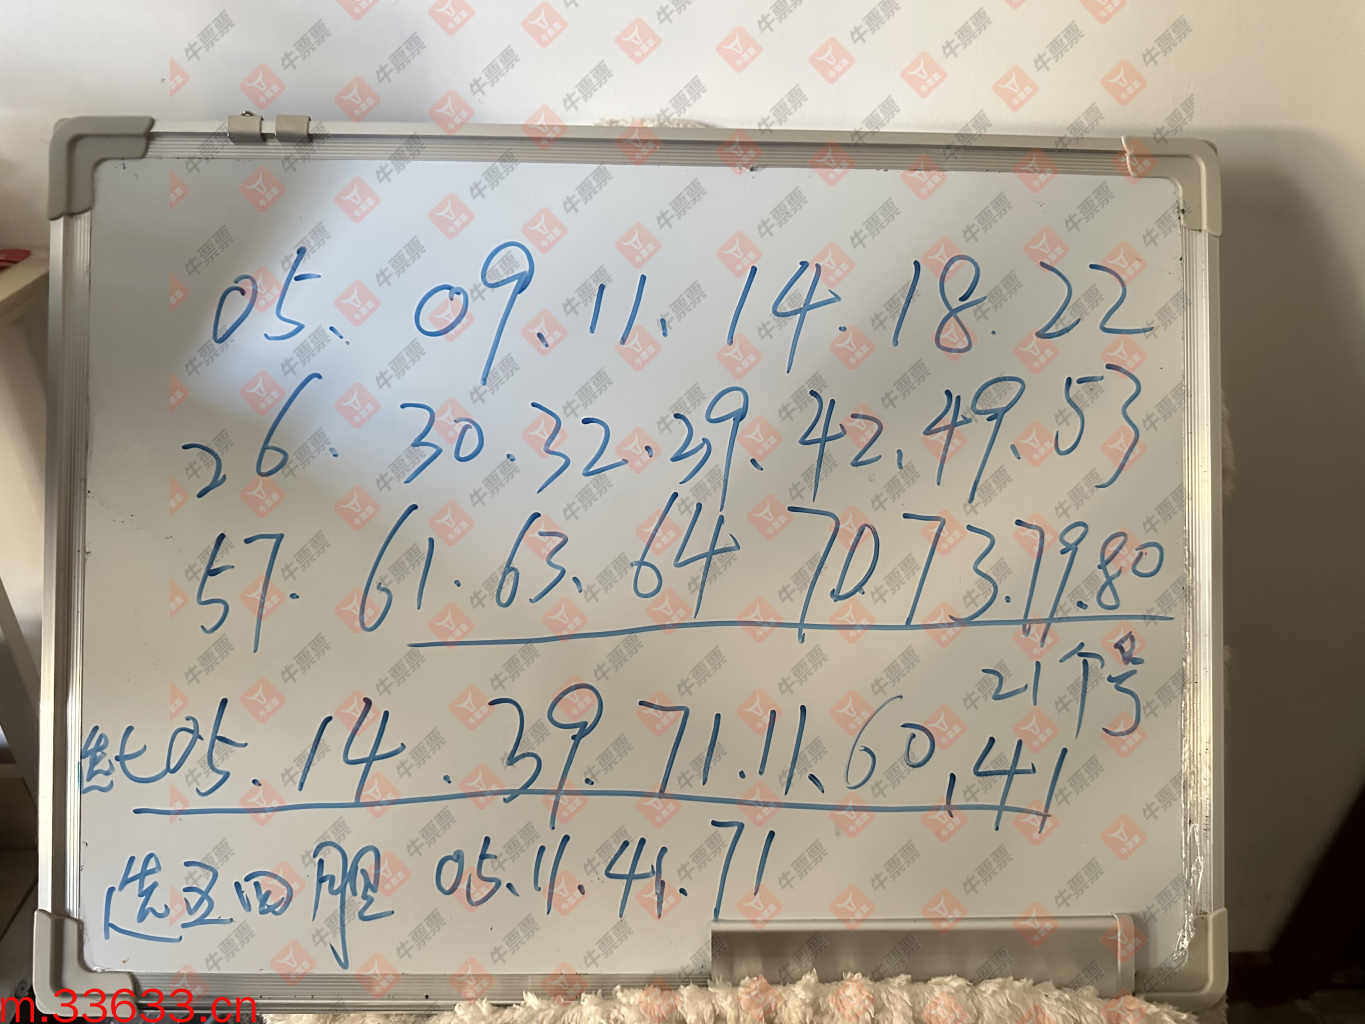 05. 09. 11. 14. 18. 22
26. 30. 32. 39. 42. 49. 53
57. 61. 63. 64 70. 73. 79. 80
21个号
选七05. 14. 39. 71. 11. 60. 41
选五四胆 05. 11. 41. 71
牛票票
m.33633.cn